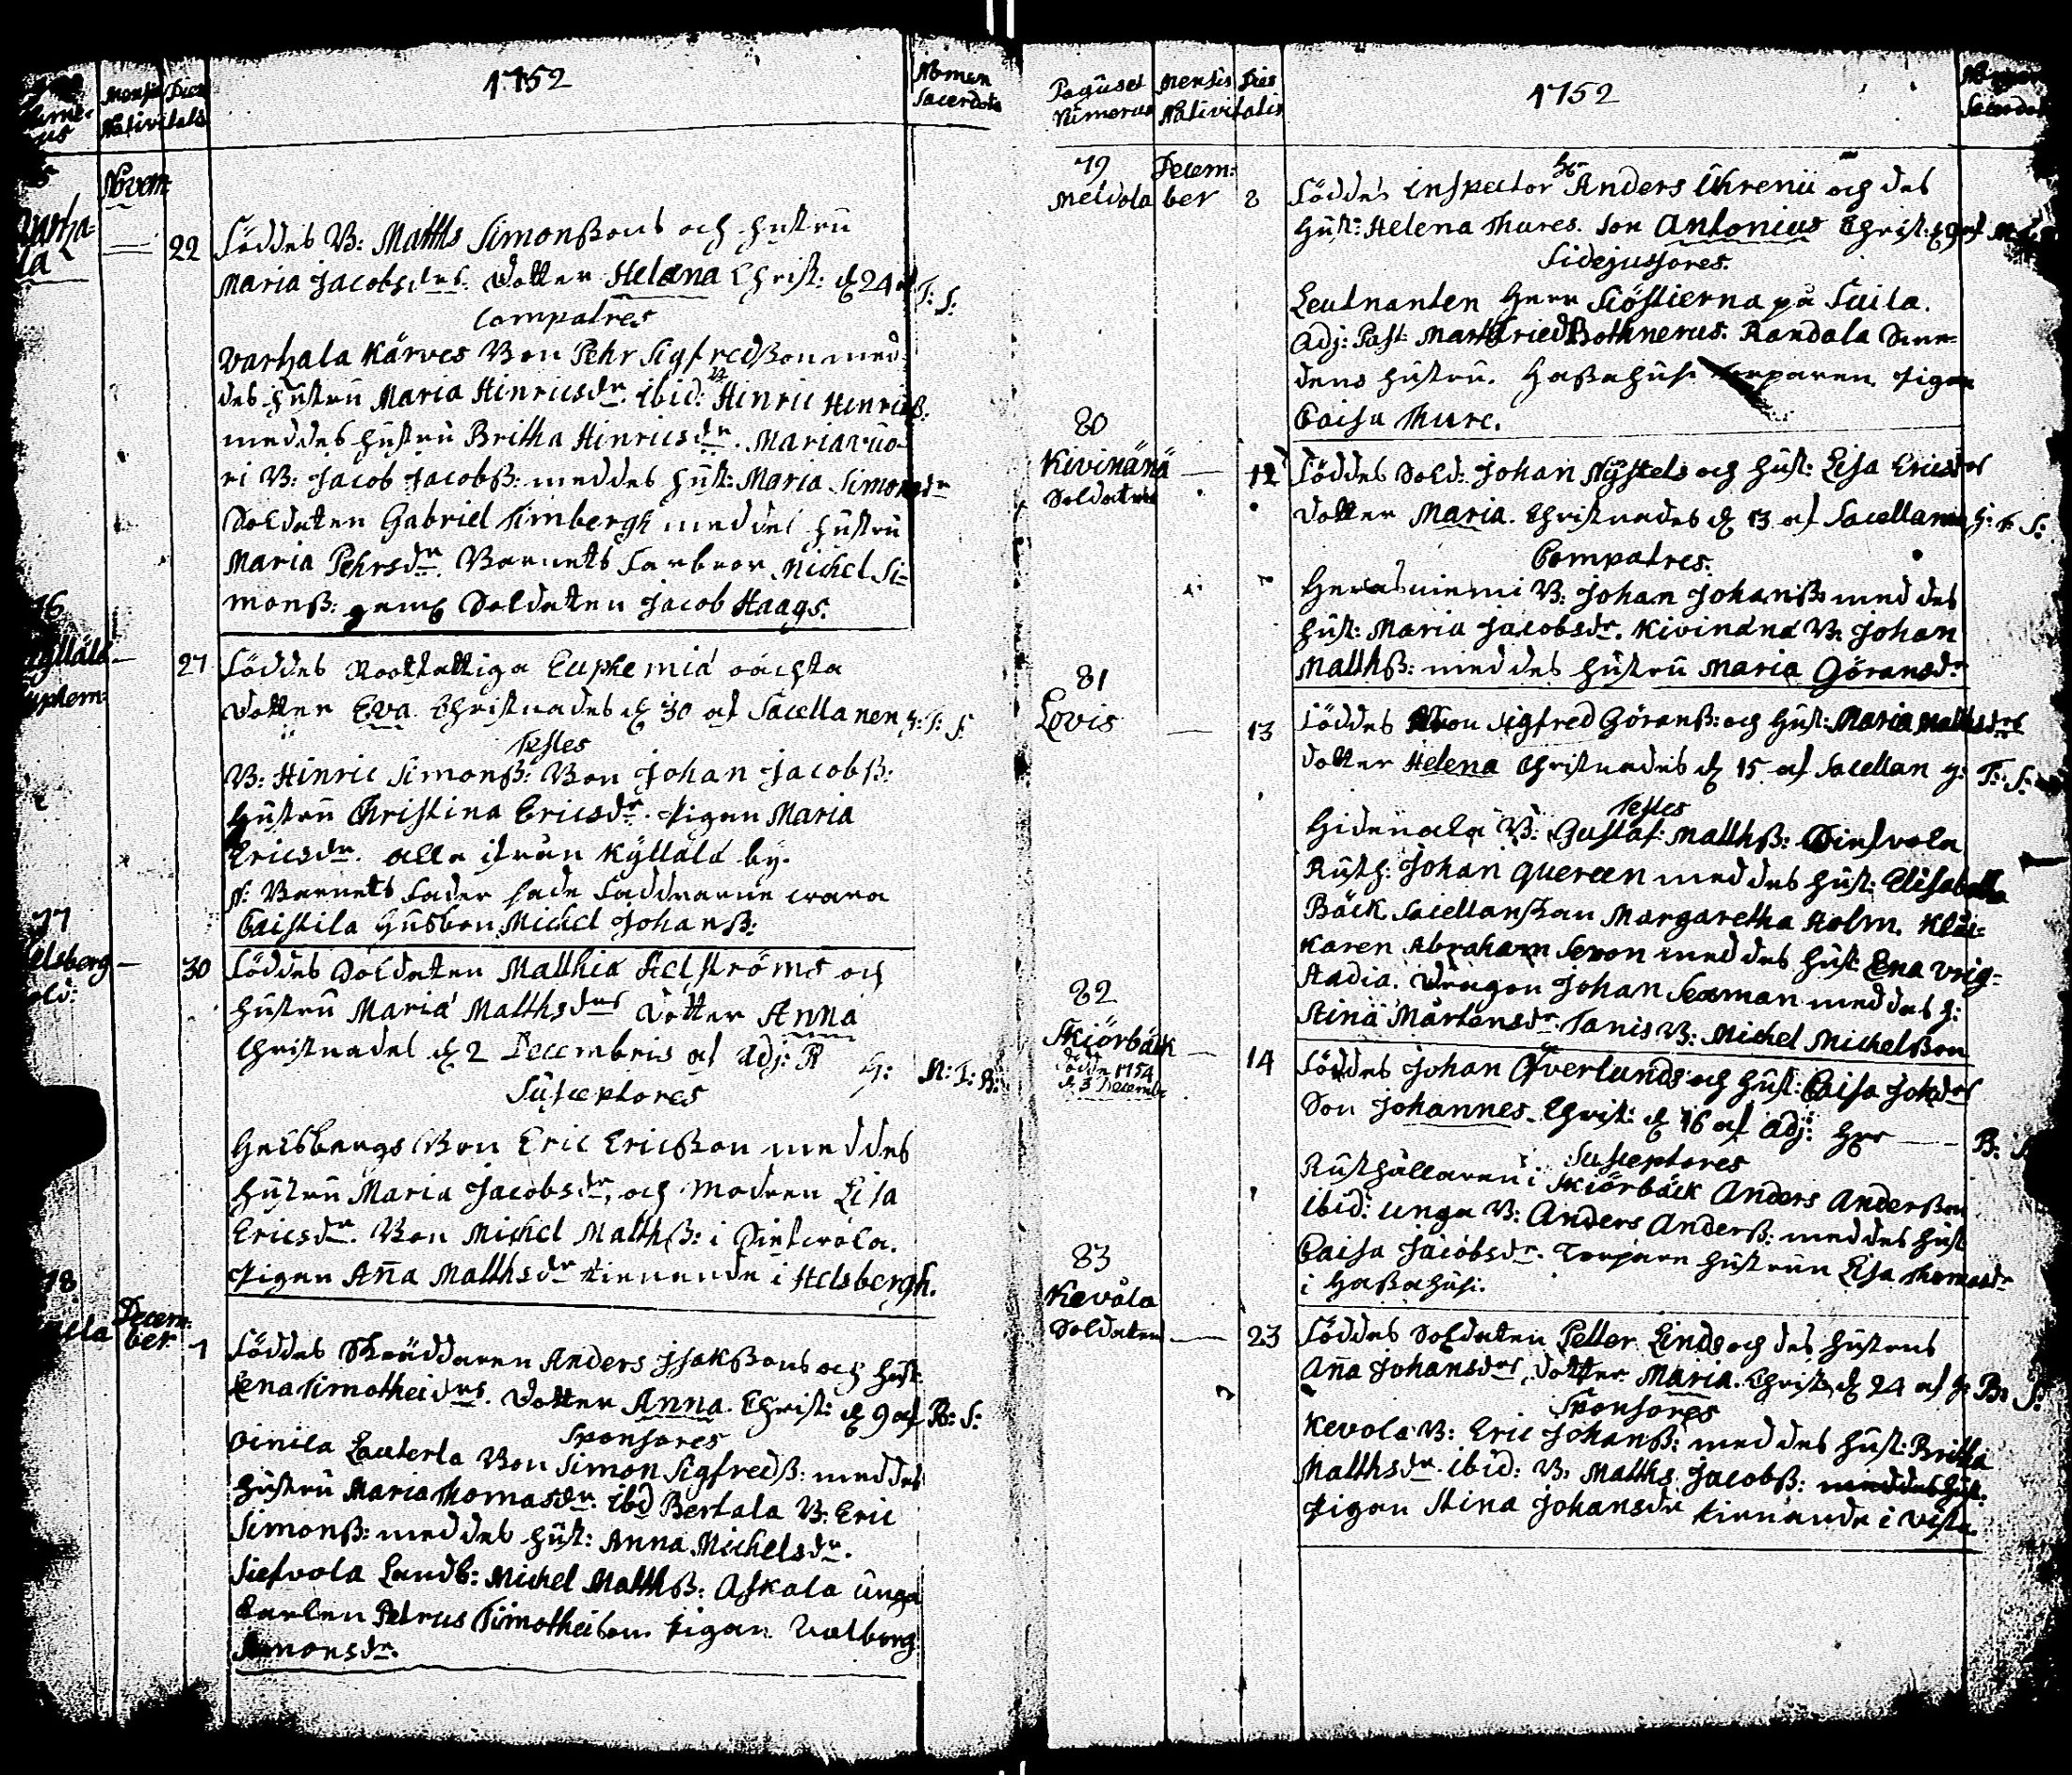 1752
Mensis Dies
Nativitatis
Nomen
Sacerdotis
Novem
22
Föddes B: Matths Simonßons och hustru
Maria Jacobsdrs. Dotter Helæna Christ: d 24 af T: S:
Compatres
Varhala Kärves Bon Pehr Sigfredßon med
des hustru Maria Hinricsdr. ibid: Hinric Henricß:
med des hustru Britha Hinricsdr. Mariavuo-
ri B: Jacob Jacobß: med des hust: Maria Simonsdr
Soldaten Gabriel Timbergh med des hustru
Maria Pehrsdr. Barnets Farbror Michel Si-
monß: Soldaten Jacob Haags.
27
Föddes Euphemiæ
Dotter Eva Christnades d 30 af Sacellanen H: T: S:
Testes
B: Hinric Simonß: Bon Johan Jacobß:
Hustru Christina Ericsdr. Pigan Maria
Ericsdr. alla ifrån Kyllälä by.
Barnets Fader sade wara
Caistila Michel Johanß:
30
Föddes Soldaten Matthiæ Helströms och
hustru Mariæ Matthsdrs Dotter Anna
Christnades d 2 Decembris af Adj: H: M: F: B:
Susceptores
Helsbergs Bon Eric Ericßon med des
hustru Maria Jacobsdr, och Modren Lisa
Ericsdr. Bon Michel Matthß: i
Pigan Aña Matthsdr tienande i Helsbergh.
78
December 1
Föddes Skräddaren Anders Isakßons och hust:
Lena Timotheidrs. Dotter Anna. Christ: d 9 af B: S:
Sponsores
Vinila Lauterla Bon Simon Sigfredß: med des
hustru Maria Thomasdr. ibd Bertala B: Eric
Simonß: med des hust: Anna Michelsdr.
Landb: Michel Matthß: Askala unga
Karlen Petrus Timotheison Pigan Valborg
Simonsdr.
1752
Pagus et Numerus
Mensis Dies
Nativitatis
79
Meldola
December 8
Föddes Inspector Hr Anders Uhrenii och des
Hust: Helena Thures. Son Antonius Christ: d 9 af
Fidejussores.
Leutnanten Herr Siöstierna på Suila.
Adj: Past: Bothnerus. Randala
hustru. Haßahusi Torparen. Pigan
Caisa Thure.
80
Kivinänä
Soldaten
12
Föddes Sold: Johan Nystels och hust: Lisa Ericsdrs
Dotter Maria. Christnades d 13 af Sacellanen H: T: S:
Compatres.
B: Johan Johanß: med des
hust: Maria Jacobsdr. Kivinänä B: Johan
Matthß: med des hustru Maria Göransdr
81
Lovis
13
Föddes Bon Sigfred Göranß: och Hust: Maria Matthsdrs
Dotter Helena Christnades d 15 af Sacellan H: T: S:
Testes
Hidenala B: Gustaf Matthß:
Rusth: Johan Quereen med des hust: Elisabetha
Bäck. Sacellansfrau Margaretha Holm. Kläc-
karen Abraham Seron med des hust: Lena Vrig-
stadia. Dragon Johan Sexman med des h:
Stina Mårtensdr. Tanis B: Michel Michelßon
82
Skiörbäck
dödde 1754
d 3 Decemb:
14
Föddes Johan Öfverlunds och Hust: Caisa Johdrs
Son Johannes. Christ: d 16 af Adj: Hr B: S:
Susceptores
Rusthållaren i Skiörbäck Anders Anderßon
ibid: unga B: Anders Anderß: med des hust
Caisa Jacobsdr. Torpare hustrun Lisa Thomasdr
i Haßahusi.
83
Kevola
Soldaten
23
Föddes Soldaten Petter Linds och des hustrus
Aña Johansdrs, Dotter Maria. Christ: d 24 af H: B: S:
Sponsores
Kevola B: Eric Johanß: med des hust: Britha
Matthsdr. ibid: B: Matths Jacobß: med des hust:
Pigan Stina Johansdr tienande i Vista.